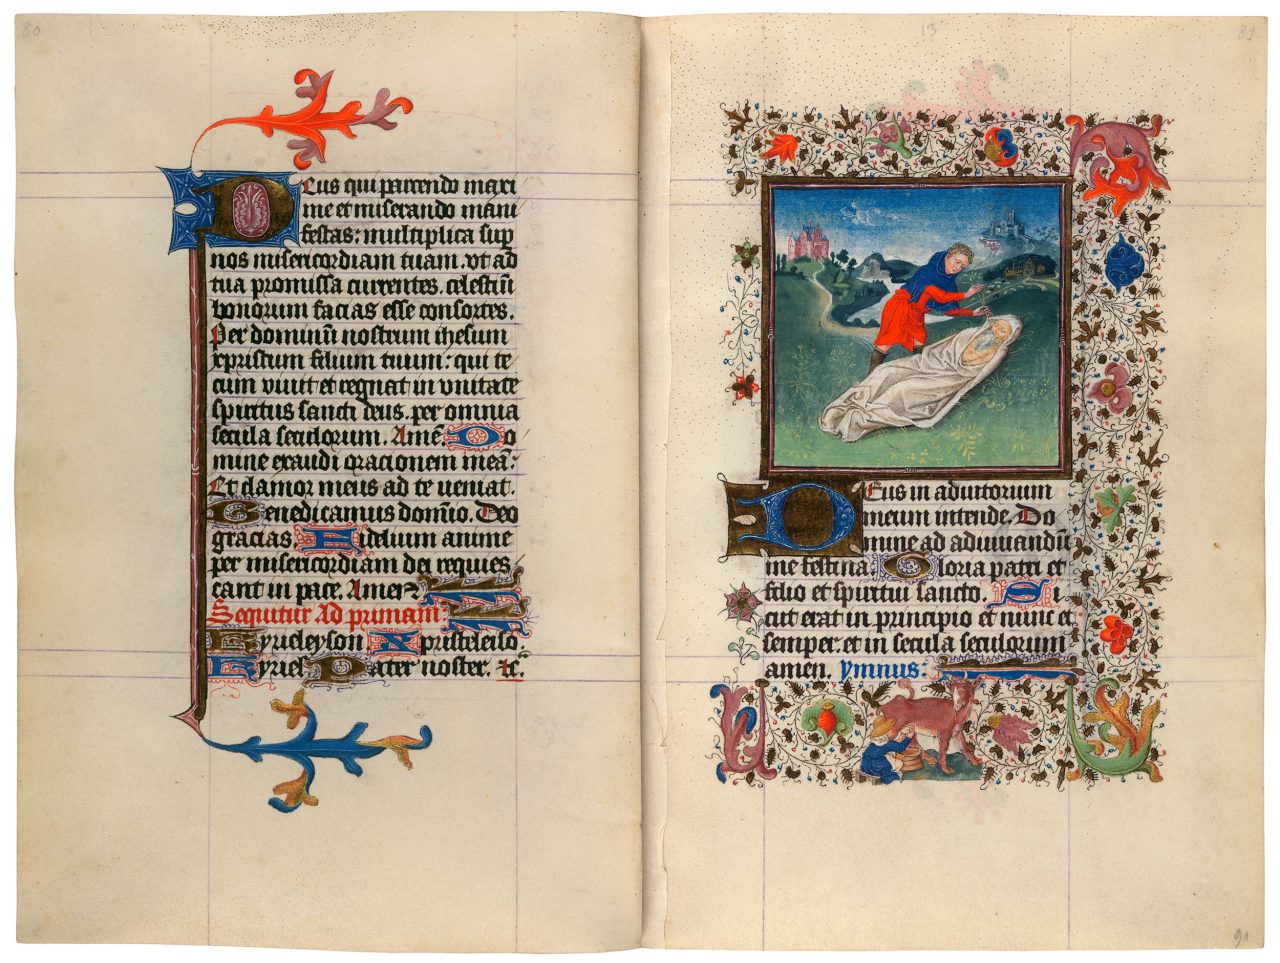 80
Deus qui parcendo maxi
me et miserando mani
festas: multiplica sup
nos misericordiam tuam. ut ad
tua promissa currentes. celestiū
bonorum facias esse consortes.
Per dominum nostrum ihesum
xpristum filium tuum: qui te
cum vivit et regnat in vnitate
spiritus sancti deus. per omnia
secula seculorum. Amē Do
mine exaudi oracionem meā:
Et clamor meus ad te veniat.
Benedicamus domīo. Deo
gracias Fidelium anime
per misericordiam dei requies
cant in pace. Amen
Sequitur Ad primam:
Kyrieleyson Xpisteleiso.
Kyriel Pater noster. ⁊c.
13
81
Deus in adiutorium
meum intende. Do
mine ad adiuuandū
me festina. Gloria patri et
filio et spiritui sancto. Si
cut erat in principio et nunc et
semper. et in secula seculorum
amen. ymnus:
91